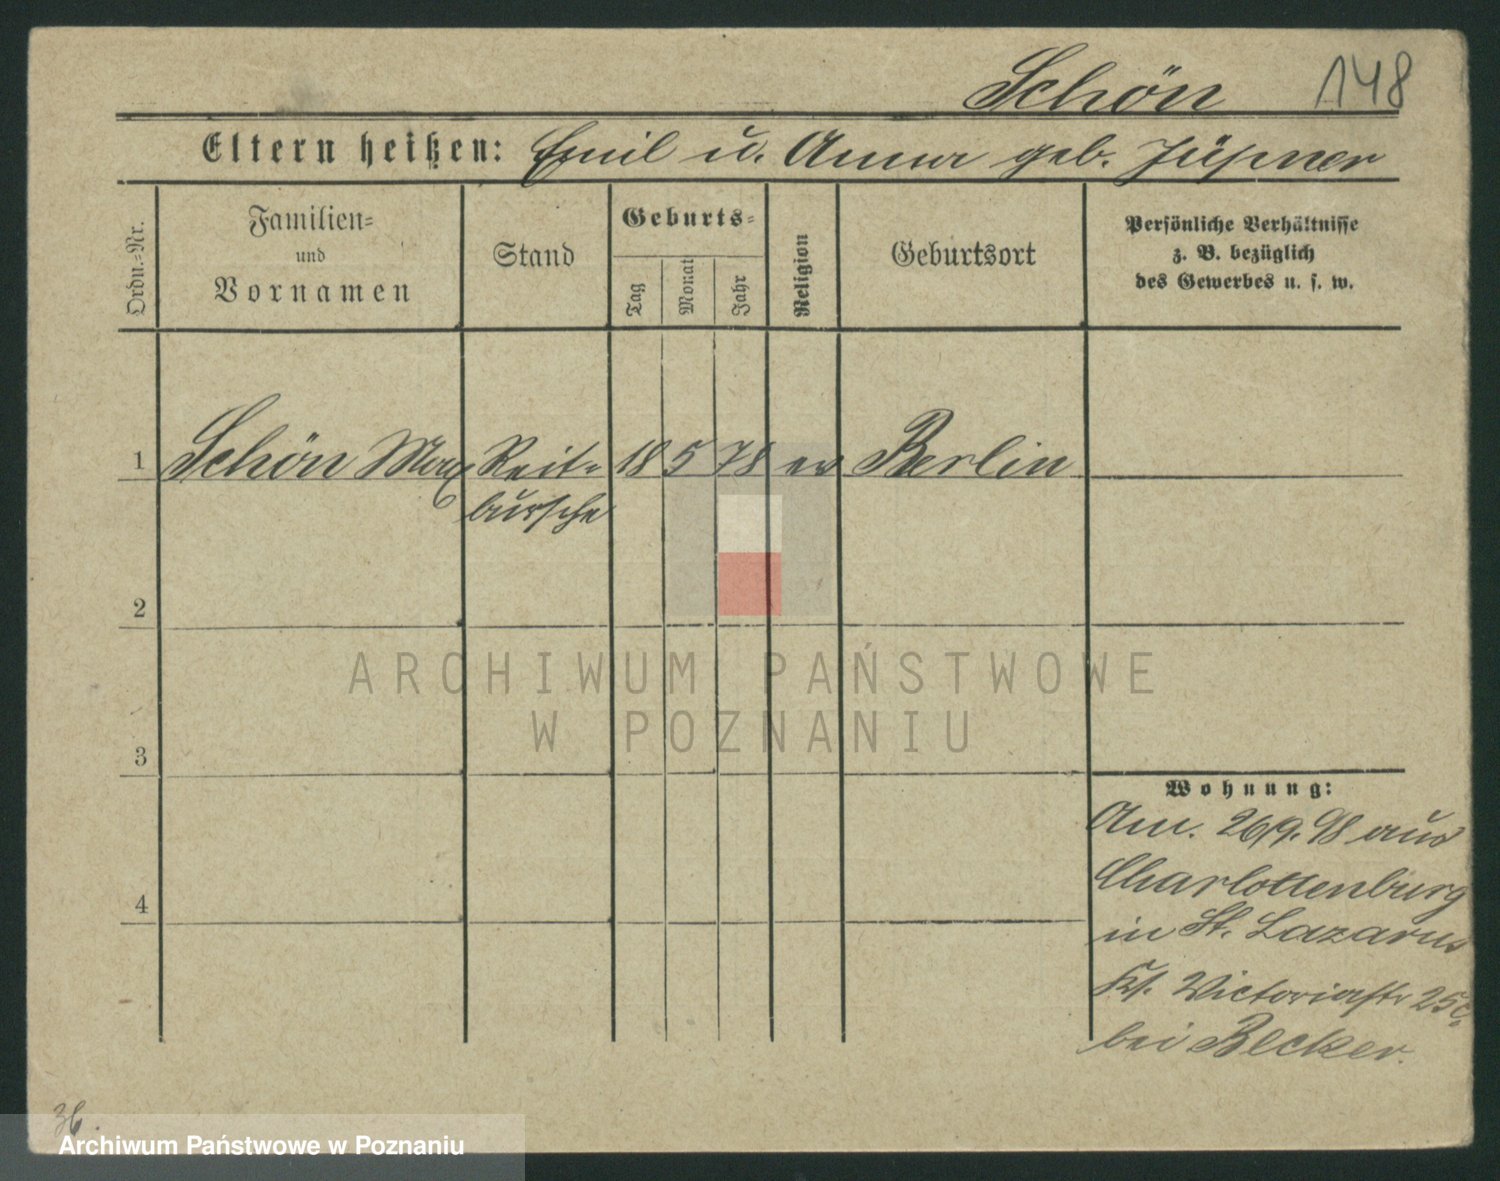 Schön 148
Eltern heißen: Emil u. Anna geb. Jüpner
Ordn.-Nr.
Familien-
und
Vornamen
Stand
Geburts-
Tag
Monat
Jahr
Religion
Geburtsort
Persönliche Verhältnisse
z. B. bezüglich
des Gewerbes u. s. w.
1 Schön Max Reit- 18 5 78 ev Berlin
bursche
2
ARCHIWUM PAŃSTWOWE
W POZNANIU
3
Wohnung:
An. 26/9. 98 aus
Charlottenburg
4
in St. Lazarus
Kl. Victoriastr 25c.
bei Becker.
36.
Archiwum Państwowe w Poznaniu